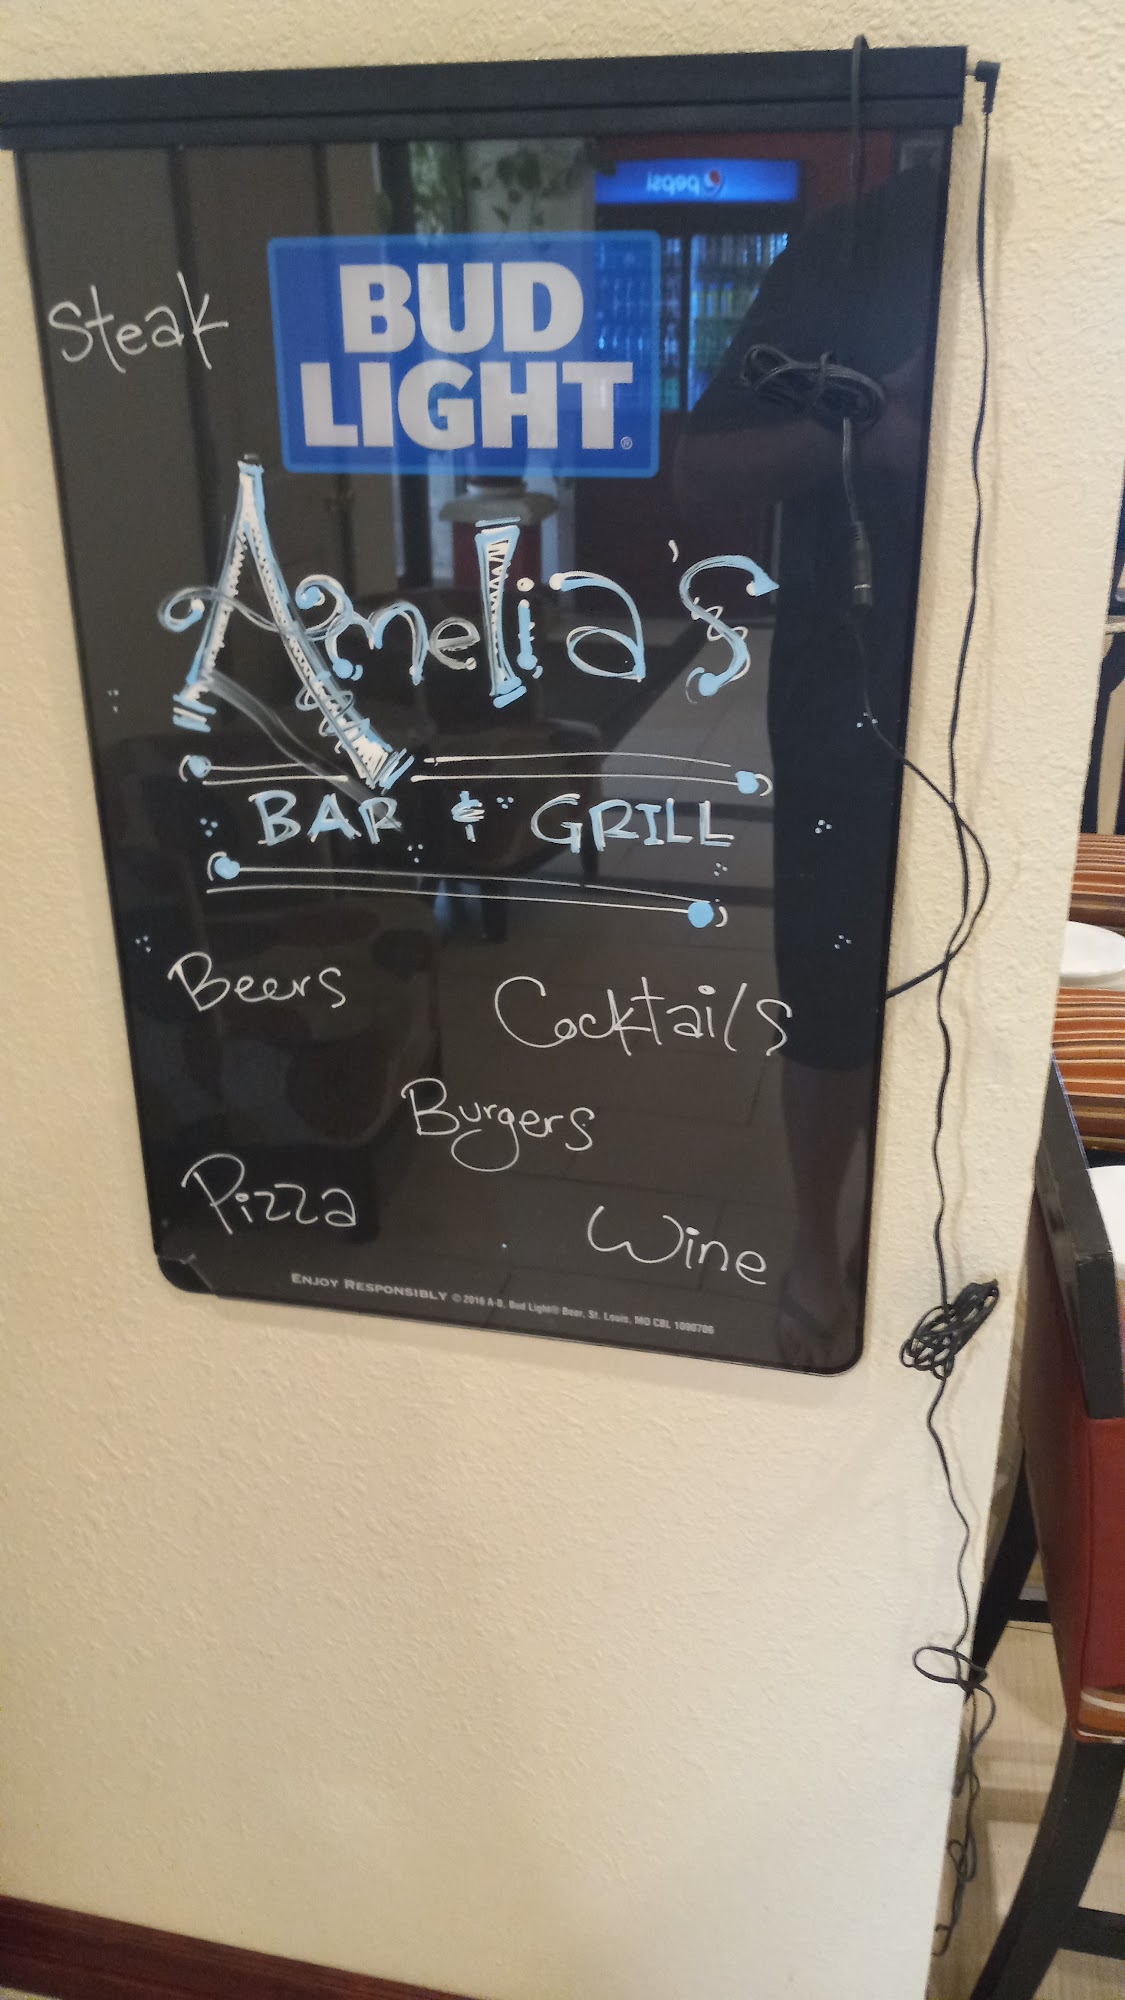 pepsi
Steak
BUD
LIGHT®
Amelia's
BAR & GRILL
Beers
Cocktails
Burgers
Pizza
Wine
ENJOY RESPONSIBLY © 2016 A-B, Bud Light® Beer, St. Louis, MO CBL 1090706